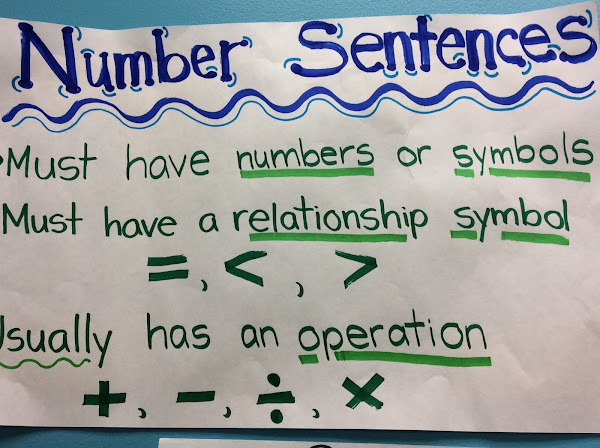 Number Sentences
• Must have numbers or symbols
Must have a relationship symbol
=, <, >
Usually has an operation
+, -, ÷, ×